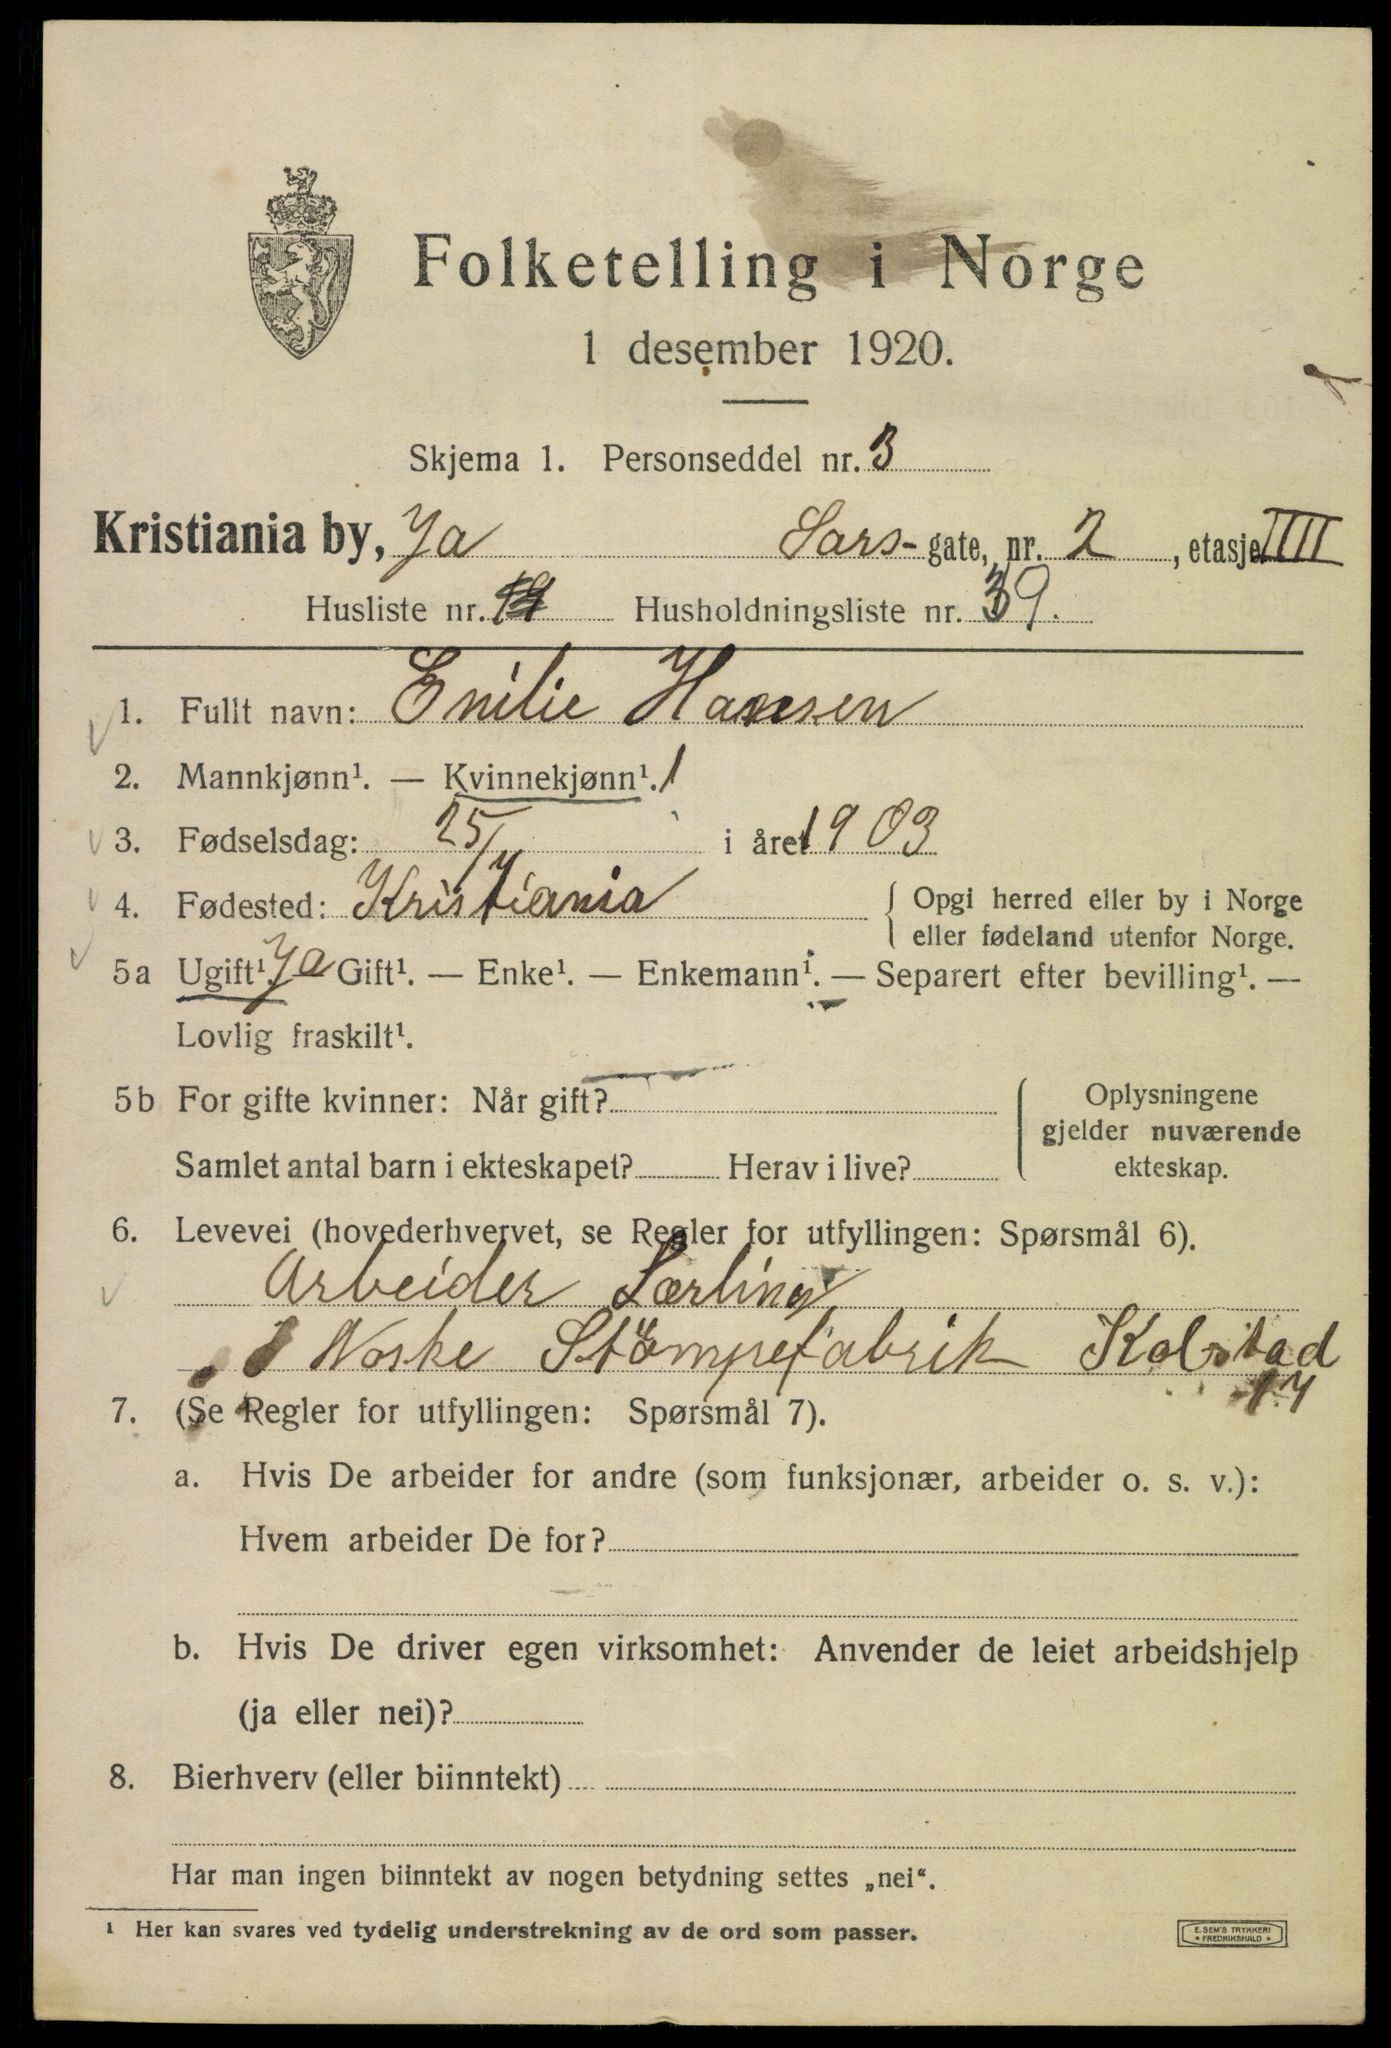 Folketelling i Norge
1 desember 1920.
Skjema 1. Personseddel nr. 3
Kristiania by, Ja Sars-gate, nr. 2, etasje IIII
Husliste nr. Husholdningsliste nr. 39.
1. Fullt navn: Emilie Hansen
2. Mannkjønn¹. — Kvinnekjønn¹. 1
3. Fødselsdag: 25/7 i året 1903
4. Fødested: Kristiania { Opgi herred eller by i Norge
eller fødeland utenfor Norge.
5a Ugift¹. Ja Gift¹. — Enke¹. — Enkemann¹. — Separert efter bevilling¹. —
Lovlig fraskilt¹.
5b For gifte kvinner: Når gift? { Oplysningene
gjelder nuværende
Samlet antal barn i ekteskapet? Herav i live? ekteskap.
6. Levevei (hovederhvervet, se Regler for utfyllingen: Spørsmål 6).
Arbeider Lærling
i Norske Stömpefabrik Kolstad
17
7. (Se Regler for utfyllingen: Spørsmål 7).
a. Hvis De arbeider for andre (som funksjonær, arbeider o. s. v.):
Hvem arbeider De for?
b. Hvis De driver egen virksomhet: Anvender de leiet arbeidshjelp
(ja eller nei)?
8. Bierhverv (eller biinntekt)
Har man ingen biinntekt av nogen betydning settes „nei“.
¹ Her kan svares ved tydelig understrekning av de ord som passer.
E. SEM'S TRYKKERI
• FREDRIKSHALD •